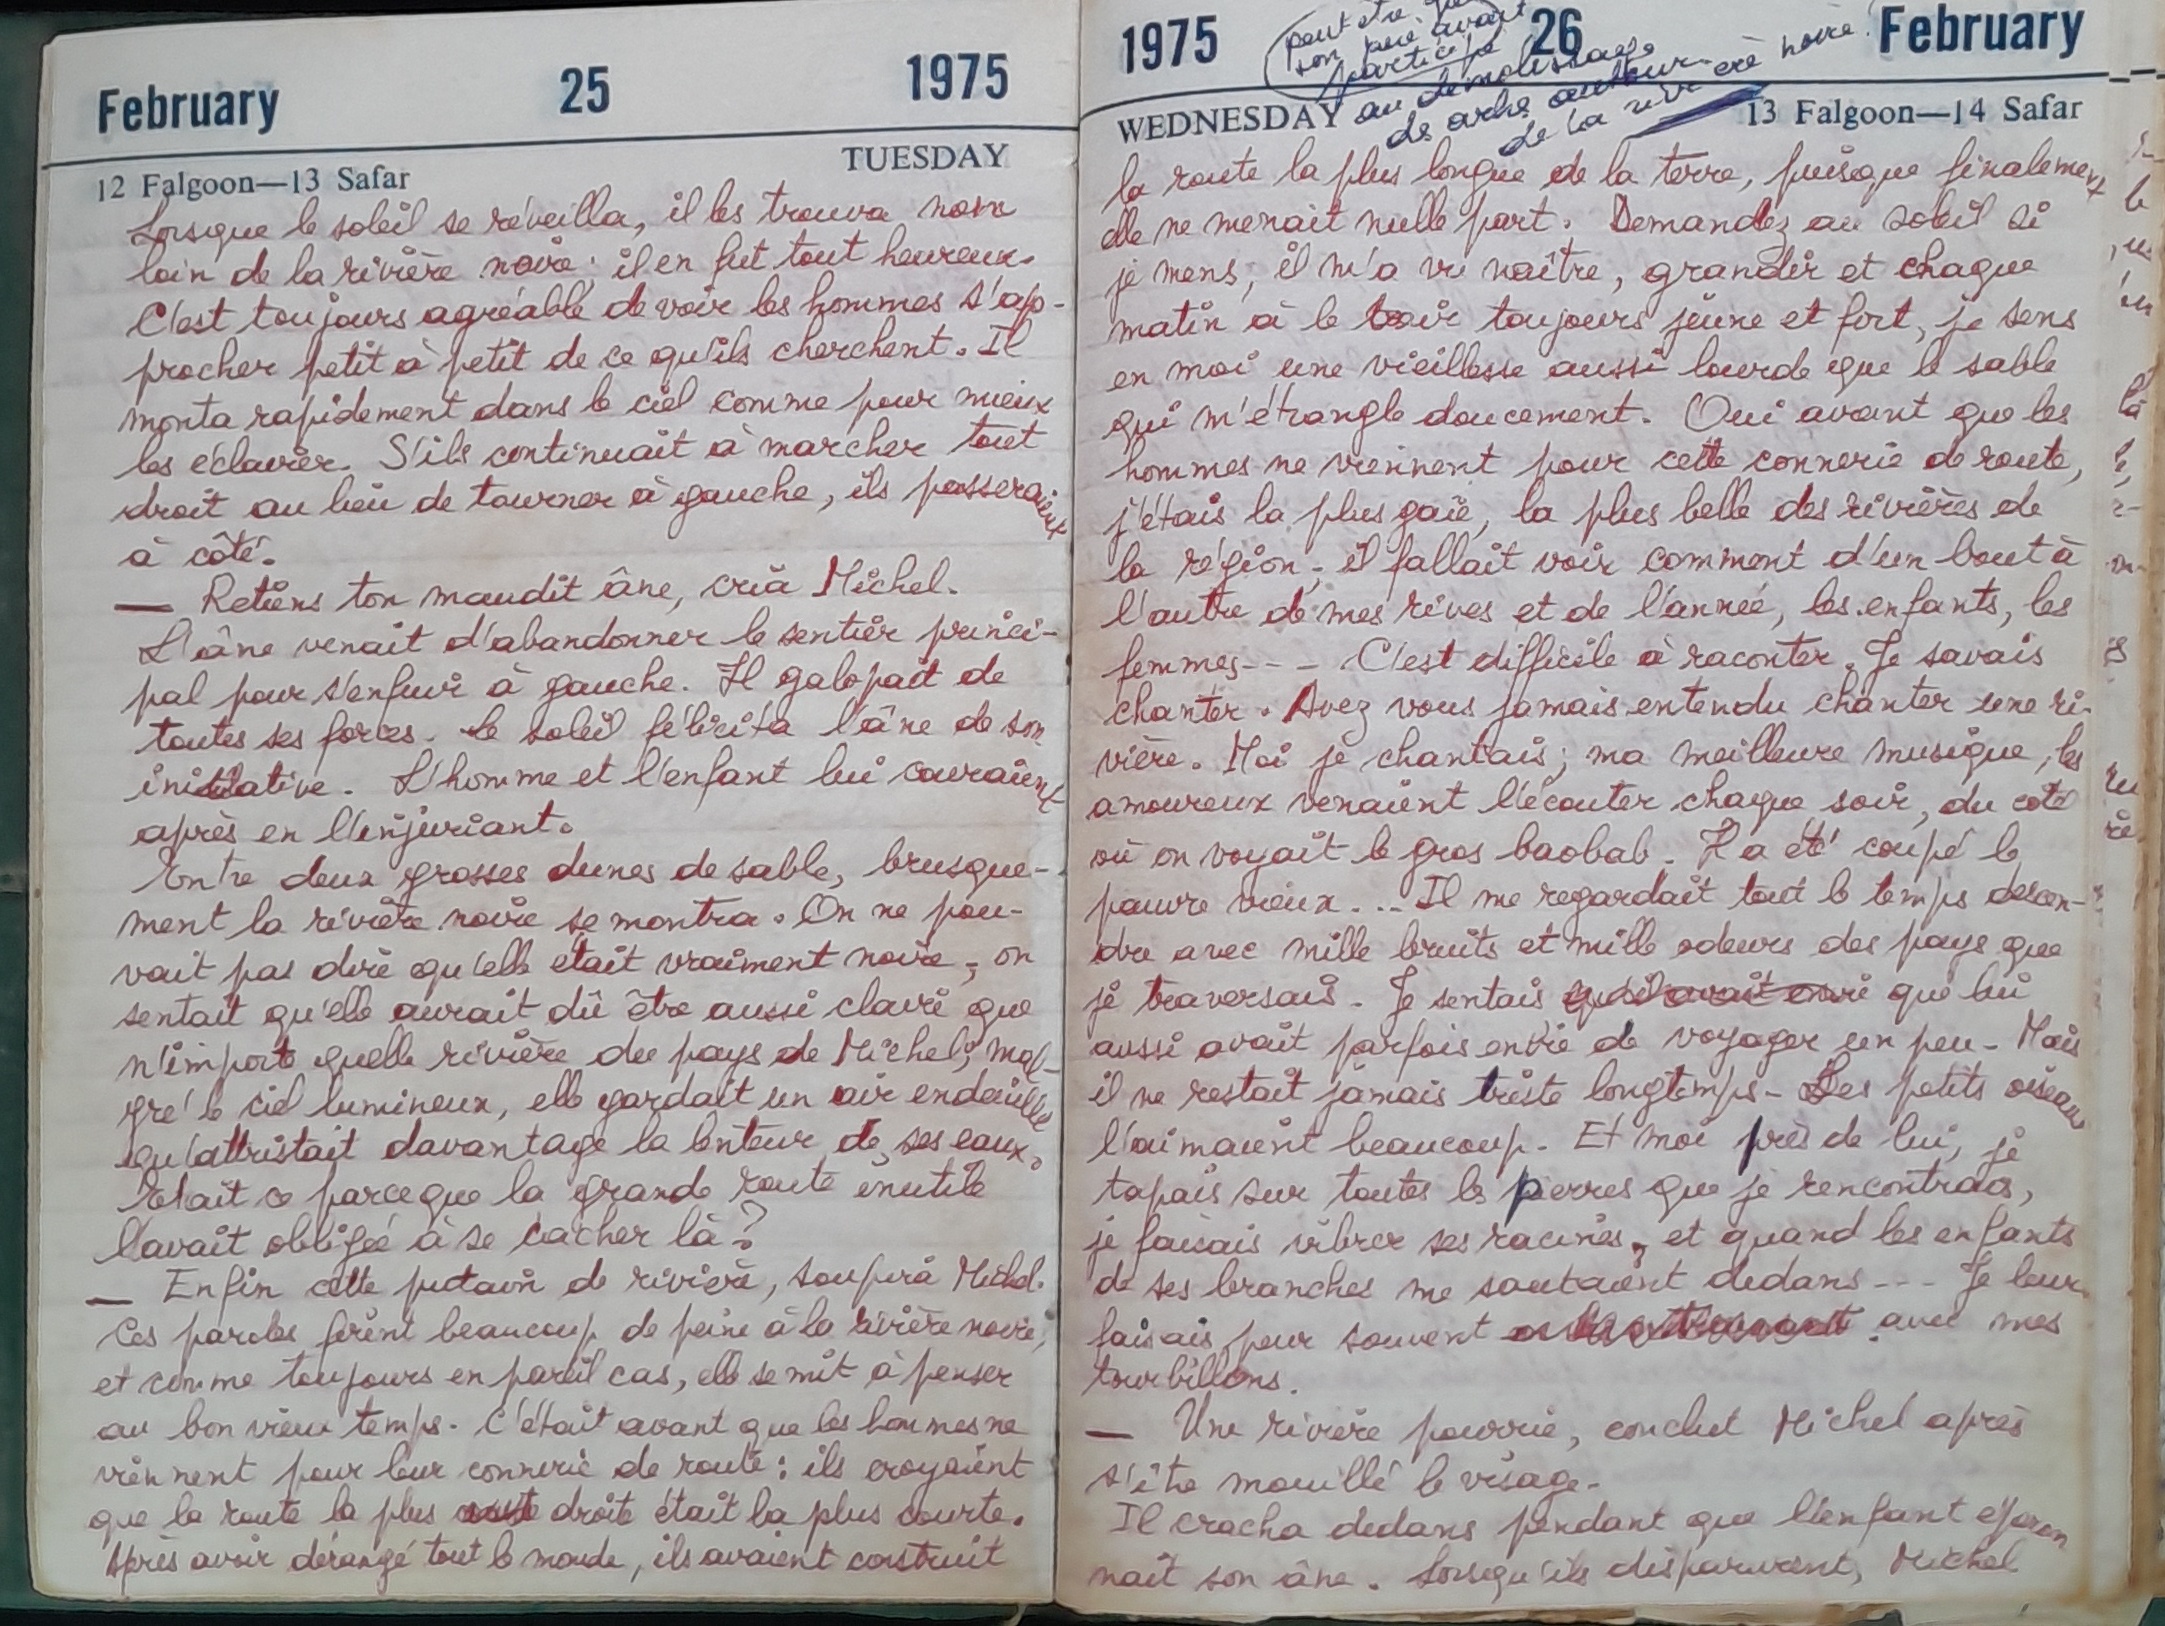 February 25 1975
TUESDAY
12 Falgoon—13 Safar
Lorsque le soleil se réveilla, il les trouva non
loin de la rivière noire; il en fut tout heureux.
C'est toujours agréable de voir les hommes s'ap-
procher petit à petit de ce qu'ils cherchent. Il
monta rapidement dans le ciel comme pour mieux
les éclairer. S'ils continuait à marcher tout
droit au lieu de tourner à gauche, ils passeraient
à côté.
— Retiens ton maudit âne, cria Michel.
L'âne venait d'abandonner le sentier princi-
pal pour s'enfuir à gauche. Il galopait de
toutes ses forces. Le soleil félicita l'âne de son
initiative. L'homme et l'enfant lui couraient
après en l'injuriant.
Entre deux grosses dunes de sable, brusque-
ment la rivière noire se montra. On ne pou-
vait pas dire qu'elle était vraiment noire, on
sentait qu'elle aurait dû être aussi claire que
n'importe quelle rivière du pays de Michel; mal-
gré le ciel lumineux, elle gardait un air endeuillé
qu'attristait davantage la lenteur de ses eaux.
Etait ce parceque la grande route inutile
l'avait obligée à se cacher là?
— Enfin cette putain de rivière, soupira Michel.
Ces paroles firent beaucoup de peine à la rivière noire,
et comme toujours en pareil cas, elle se mit à penser
au bon vieux temps. C'était avant que les hommes ne
viennent pour leur connerie de route: ils croyaient
que la route la plus droite était la plus courte.
Après avoir dérangé tout le monde, ils avaient construit
1975 26 February
peut être que
son père avait
participé
au demoustiquage
des arbres autour
de la rivière noire!
WEDNESDAY 13 Falgoon—14 Safar
la route la plus longue de la terre, puisque finalement
elle ne menait nulle part. Demandez au soleil si
je mens; il m'a vu naître, grandir et chaque
matin à le voir toujours jeune et fort, je sens
en moi une vieillesse aussi lourde que le sable
qui m'étrangle doucement. Oui avant que les
hommes ne viennent pour cette connerie de route,
j'étais la plus gaie, la plus belle des rivières de
la région; il fallait voir comment d'un bout à
l'autre de mes rives et de l'année, les enfants, les
femmes --- C'est difficile à raconter. Je savais
chanter. Avez vous jamais entendu chanter une ri-
vière. Moi je chantais; ma meilleure musique, les
amoureux venaient l'écouter chaque soir, du coté
où on voyait le gros baobab. Il a été coupé le
pauvre vieux... Il me regardait tout le temps descen-
dre avec mille bruits et mille odeurs des pays que
je traversais. Je sentais qu'il avait envie que lui
aussi avait parfois envie de voyager un peu. Mais
il ne restait jamais triste longtemps. Les petits oiseaux
l'aimaient beaucoup. Et moi près de lui, je
tapais sur toutes les pierres que je rencontrais,
je faisais vibrer ses racines, et quand les enfants
de ses branches me sautaient dedans --- Je leur
faisais peur souvent avec mes
tourbillons.
— Une rivière pourrie, conclut Michel après
s'être mouillé le visage.
Il cracha dedans pendant que l'enfant éperon
nait son âne. Lorsqu'ils disparurent, Michel